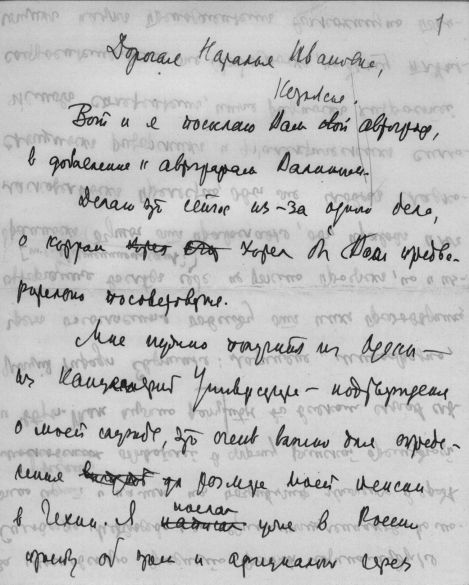 1
Дорогая Наталья Ивановна,
Вот и я посылаю Вам свой автограф,
в добавление к автографам
Делаю это сейчас из-за одного дела,
о котором хотел бы Вам предва-
рительно посоветовать.
Мне нужно получить из Одессы —
из Канцелярии Университета — подтверждения
о моей службе, это очень важно для опреде-
ления размера моей пенсии
в Чехии. Я послал уже в Россию
просьбу об этом и через